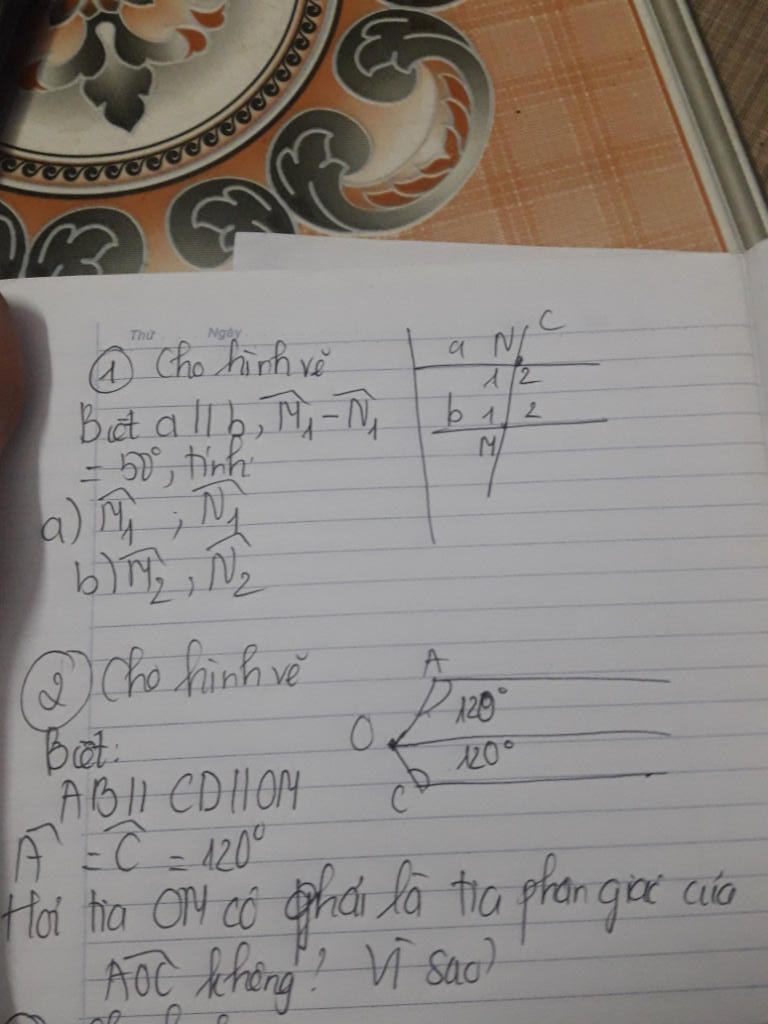 Thứ Ngày
① Cho hình vẽ
Biết a // b, M̂₁ - N̂₁
= 50°, tính
a) M̂₁ ; N̂₁
b) M̂₂, N̂₂
a N C
1 2
b 1 2
M
② Cho hình vẽ
Biết:
AB // CD // OM
Â = Ĉ = 120°
Hỏi tia OM có phải là tia phân giác của
AOC không? Vì sao?
A
120°
O
120°
C